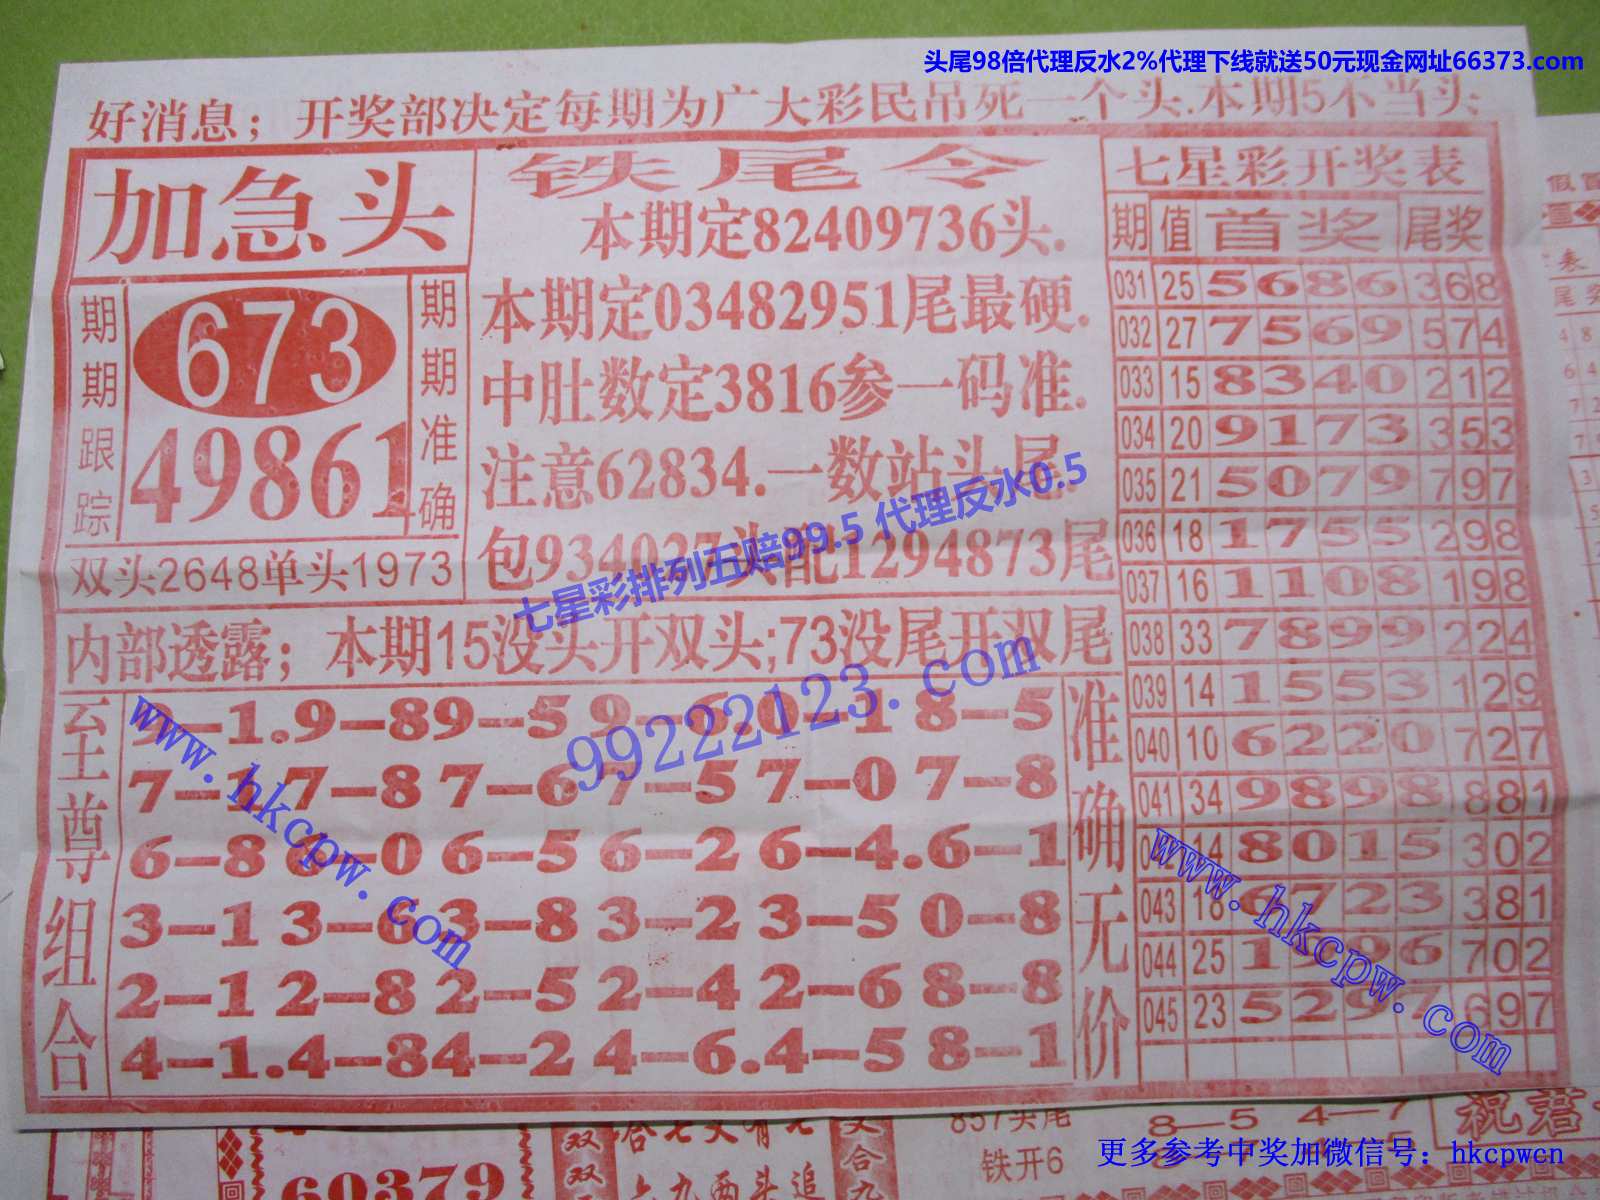 头尾98倍代理反水2%代理下线就送50元现金网址66373.com
好消息；开奖部决定每期为广大彩民吊死一个头.本期5不当头
加急头
期期跟踪
673
49861
期期准确
双头2648单头1973
铁尾令
本期定82409736头.
本期定03482951尾最硬.
中肚数定3816参一码准.
注意62834.一数站头尾.
包934027头配1294873尾
七星彩排列五赔99.5 代理反水0.5
内部透露；本期15没头开双头;73没尾开双尾
99222123.com
至尊组合
9-1.9-8 9-5 9-6 0-1 8-5
7-1 7-8 7-6 7-5 7-0 7-8
6-8 6-0 6-5 6-2 6-4.6-1
3-1 3-6 3-8 3-2 3-5 0-8
2-1 2-8 2-5 2-4 2-6 8-8
4-1.4-8 4-2 4-6.4-5 8-1
准确无价
www.hkcpw.com
七星彩开奖表
期 值 首奖 尾奖
031 25 5686 368
032 27 7569 574
033 15 8340 212
034 20 9173 353
035 21 5079 797
036 18 1755 298
037 16 1168 198
038 33 7899 224
039 14 1553 129
040 10 6220 727
041 34 9898 881
14 8015 302
043 18 6723 381
044 25 1996 702
045 23 5297 697
www.hkcpw.com
60379
双双
857头尾
铁开6
8-5 4-7
祝君
更多参考中奖加微信号：hkcpwcn